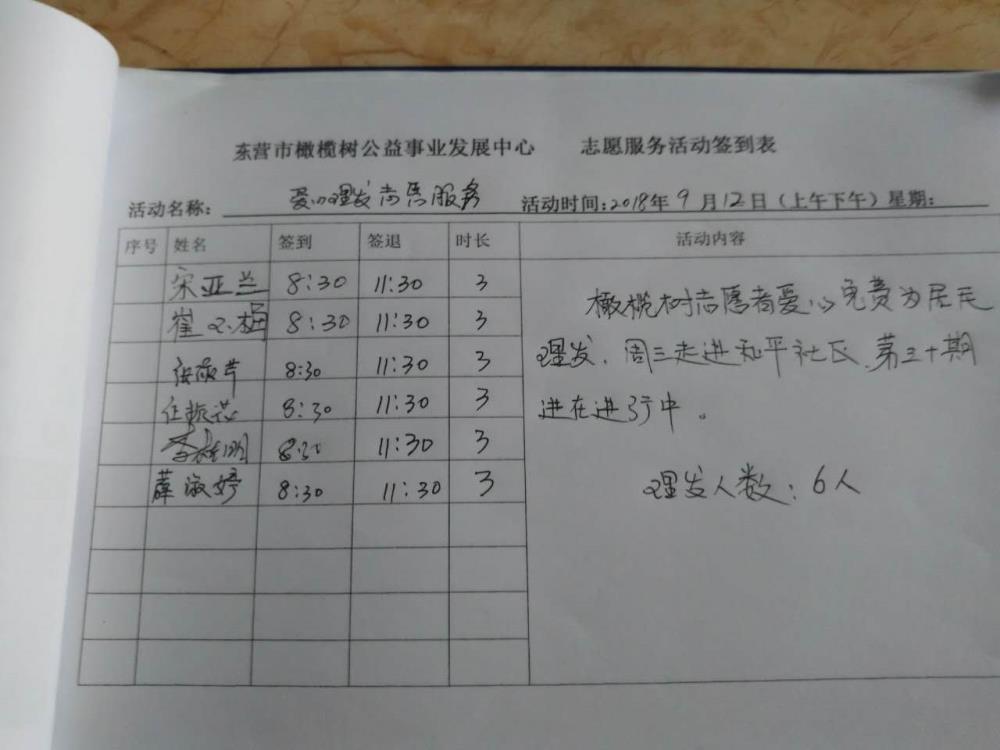 东营市橄榄树公益事业发展中心 志愿服务活动签到表
活动名称： 爱心理发志愿服务 活动时间:2018年9月12日（上午下午）星期：
序号 姓名 签到 签退 时长 活动内容
宋亚兰 8:30 11:30 3
崔 梅 8:30 11:30 3
8:30 11:30 3
任振芯 8:30 11:30 3
李 明 8:30 11:30 3
薛淑婷 8:30 11:30 3
橄榄树志愿者爱心免费为居民
理发，周三走进和平社区，第三十期
进在进行中。
理发人数：6人